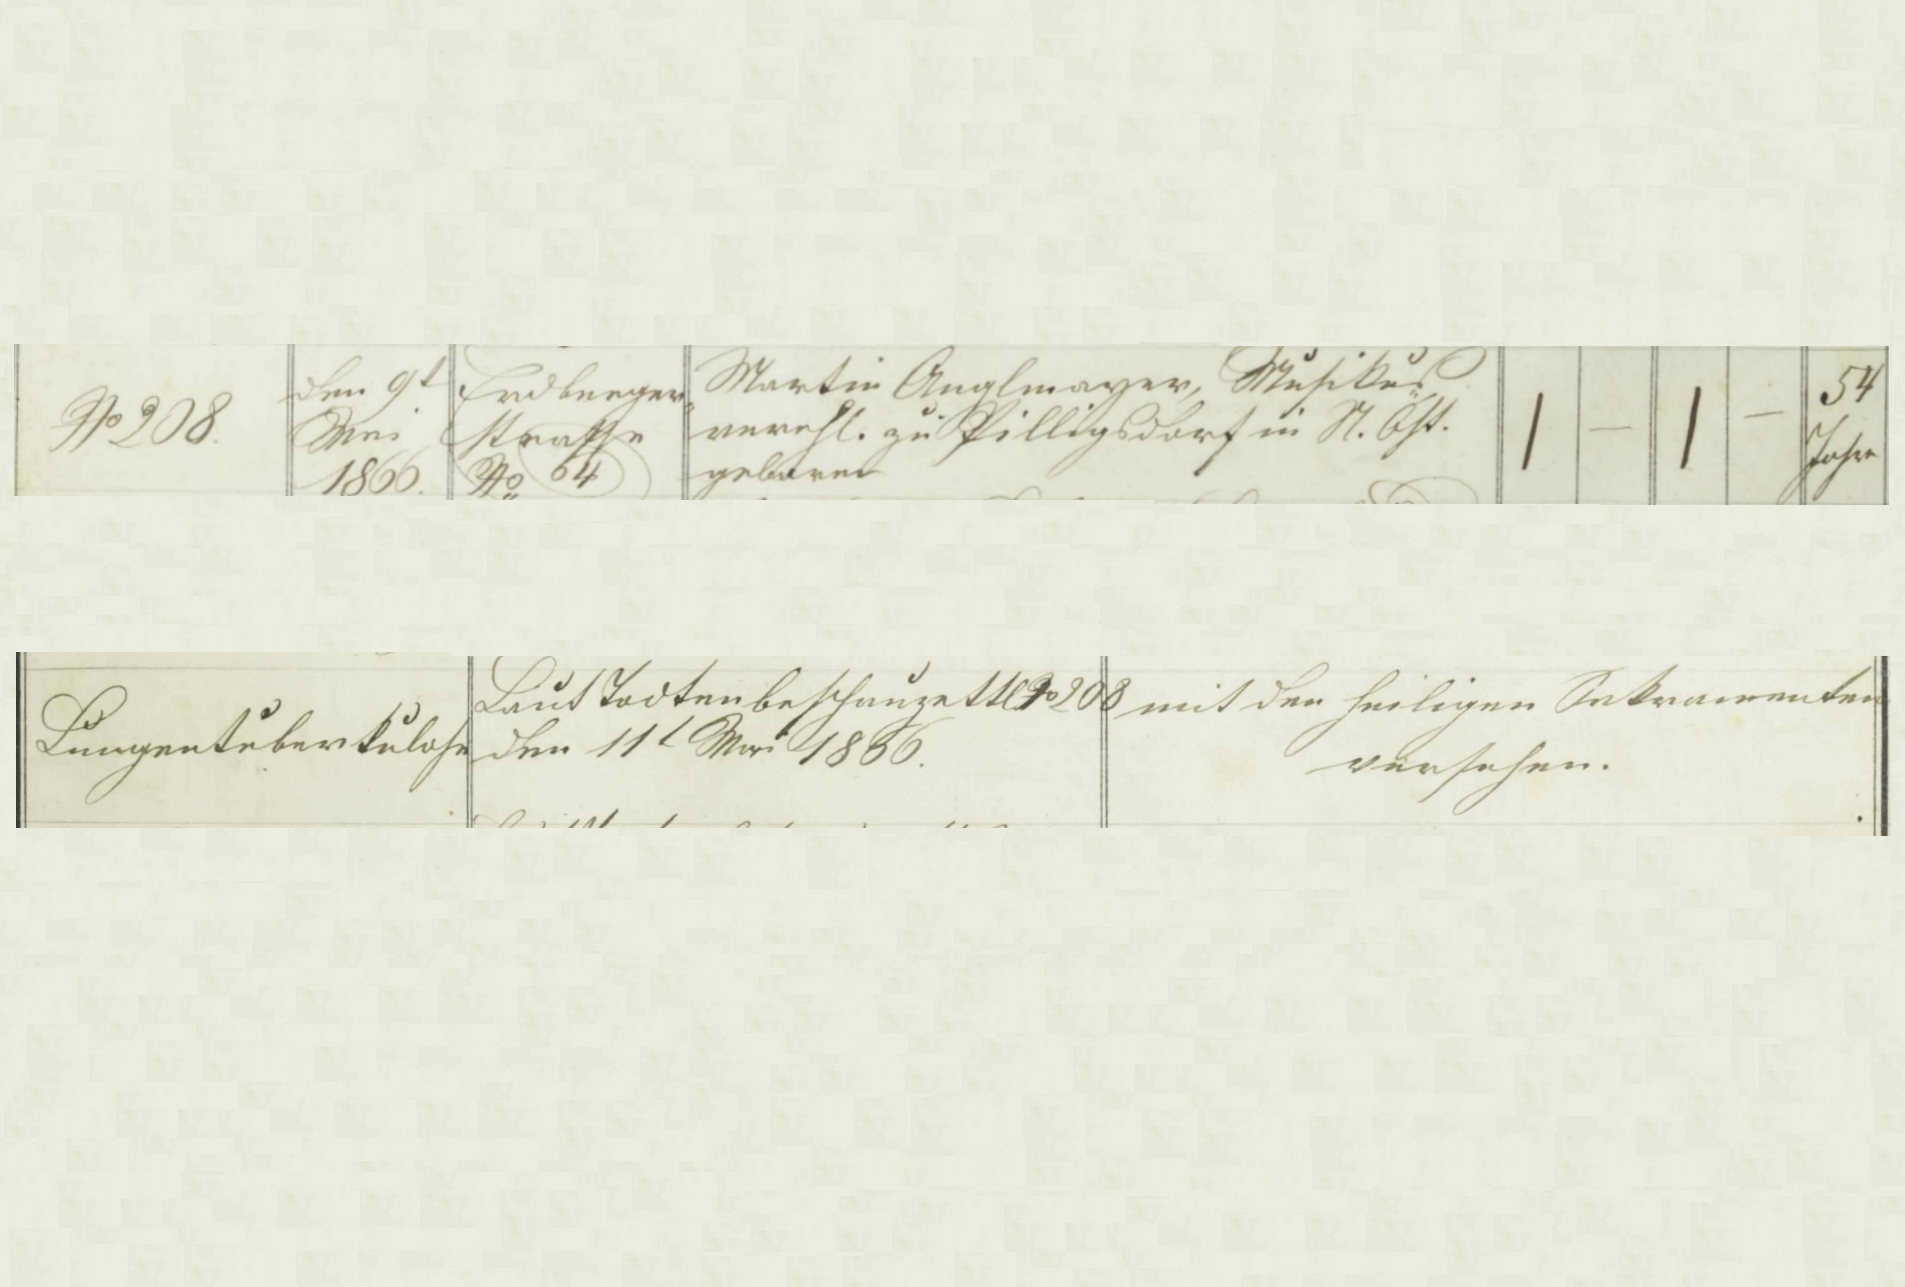 No 208.
den 9t
Mai
1866.
Erdberger
strasse
No 64
Martin Anglmayer, Musikus
verehl. zu Pilligsdorf in N. Öst.
geboren
1 — 1 —
54
Jahre
Lungentuberkulose
Laut Todtenbeschauzettl No 208
den 11t Mai 1866.
mit den heiligen Sakramenten
versehen.